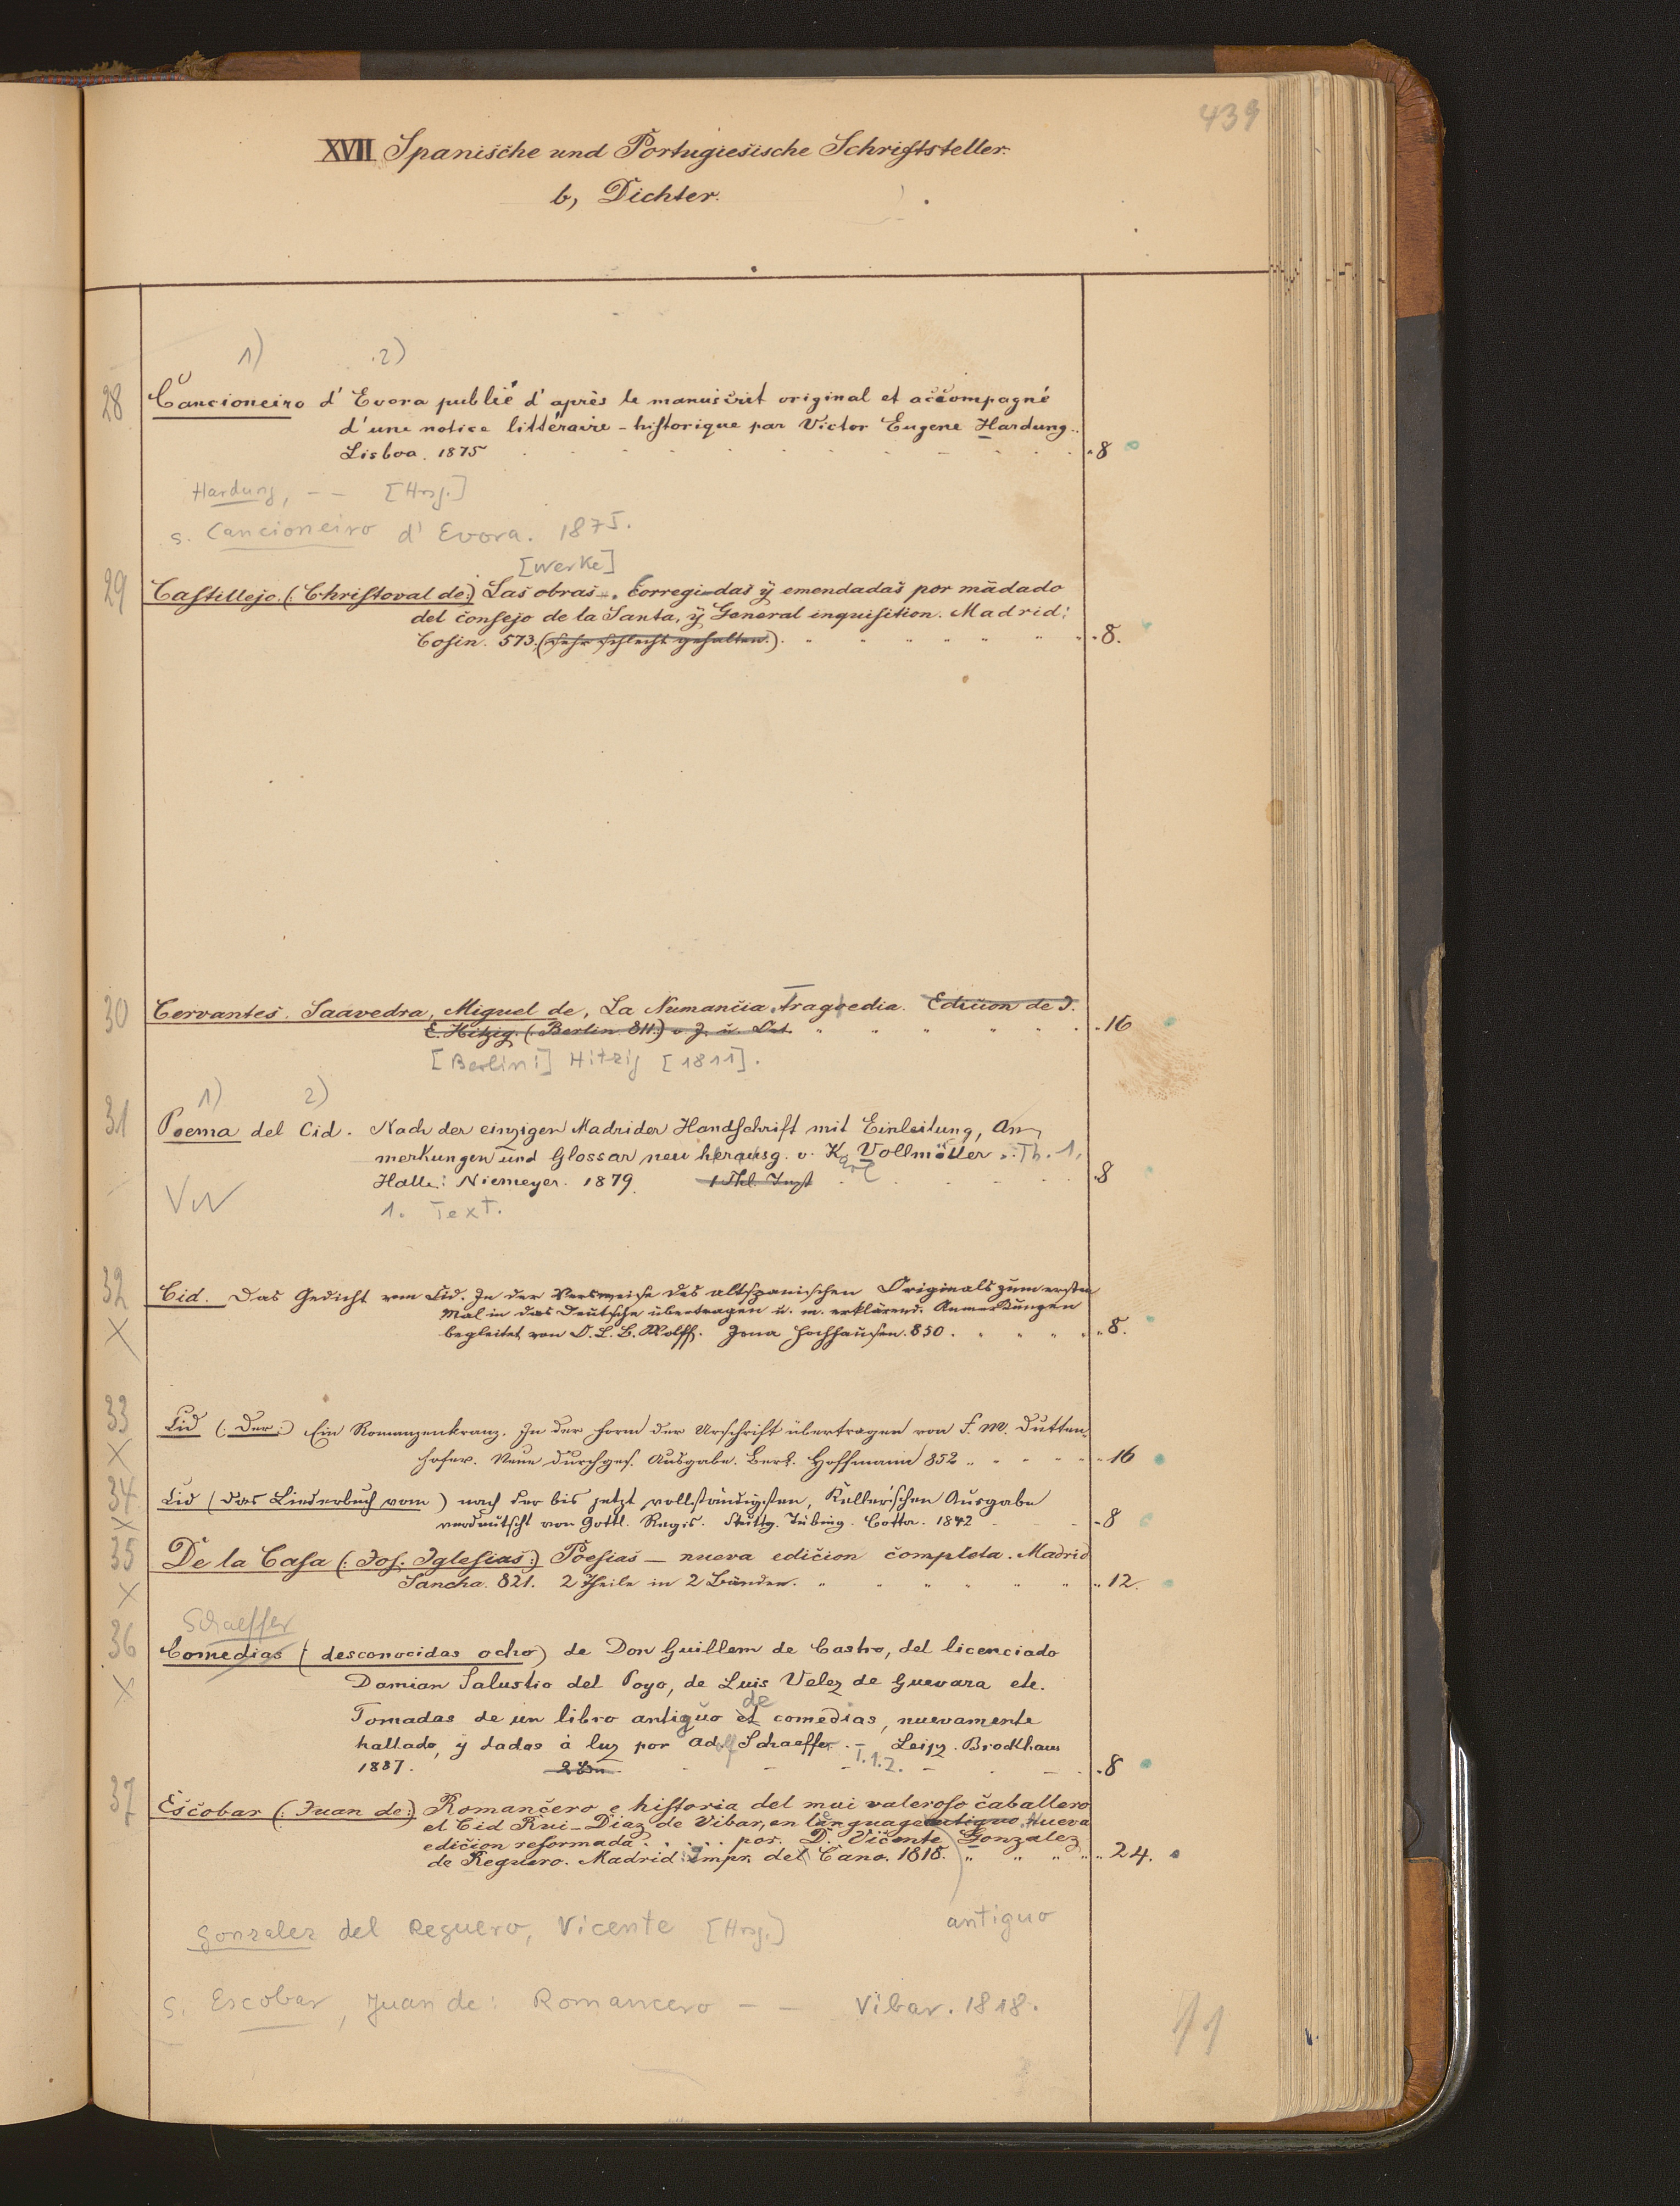 439
XVII Spanische und Portugiesische Schriftsteller.
b, Dichter.
1) 2)
28 Cancioneiro d'Evora publié d'après le manuscrit original et accompagné
d'une notice littéraire-historique par Victor Eugene Hardung.
Lisboa. 1875 8
Hardung, -- [Hrsg.]
s. Cancioneiro d'Evora. 1875.
[Werke]
29 Castillejo. (: Christoval de:) Las obras.. Corregidas ÿ emendadas por mādado
del consejo de la Santa, ÿ General inquisition. Madrid:
Cosin. 573. (sehr schlecht gehalten.) 8.
30 Cervantes Saavedra, Miguel de, La Numancia Tragoedia. Edicion de J.
E. Hitzig. (Berlin 811.) 16
[Berlin:] Hitzig [1811].
1) 2)
31 Poema del Cid. Nach der einzigen Madrider Handschrift mit Einleitung, An-
merkungen und Glossar neu herausg. v. Karl Vollmöller. Th. 1.
Halle: Niemeyer. 1879. 8
1. Text.
32 Cid. Das Gedicht vom Cid. In der Versweise des altspanischen Originals zum ersten
Mal in das Deutsche übertragen u. m. erklärend. Anmerkungen
X begleitet von O. L. B. Wolff. Jena Hochhausen. 850. 8.
33 Cid (: Der:) Ein Romanzenkranz. In der Form der Urschrift übertragen von F. M. Dutten-
X hofer. Neue durchges. Ausgabe. Berl. Hoffmann 852 16
34 Cid (das Liederbuch vom) nach der bis jetzt vollständigsten, Keller'schen Ausgabe
X verdeutscht von Gottl. Regis. Stuttg. Tübing. Cotta. 1842 8
35 De la Casa (: Jos. Iglesias:) Poesias — nueva edicion completa. Madrid
X Sancha. 821. 2 Theile in 2 Bänden. 12.
Schaeffer
36 Comedias (desconocidas ocho) de Don Guillem de Castro, del licenciado
X Damian Salustio del Poyo, de Luis Velez de Guevara etc.
Tomadas de un libro antiguo de comedias, nuevamente
hallado, ÿ dadas à luz por Adolf Schaeffer. - Leipz. Brockhaus
1887. T. 1. 2. 8
37 Escobar (: Juan de:) Romancero e historia del mui valeroso caballero
el Cid Rui-Diaz de Vibar, en language antiguo. Nueva
edicion reformada . . . . . por. D. Vicente Gonzalez
de Reguero. Madrid: impr. de Cano. 1818. 24.
antiguo
Gonzalez del Reguero, Vicente [Hrsg.]
s. Escobar, Juan de: Romancero - - Vibar. 1818.